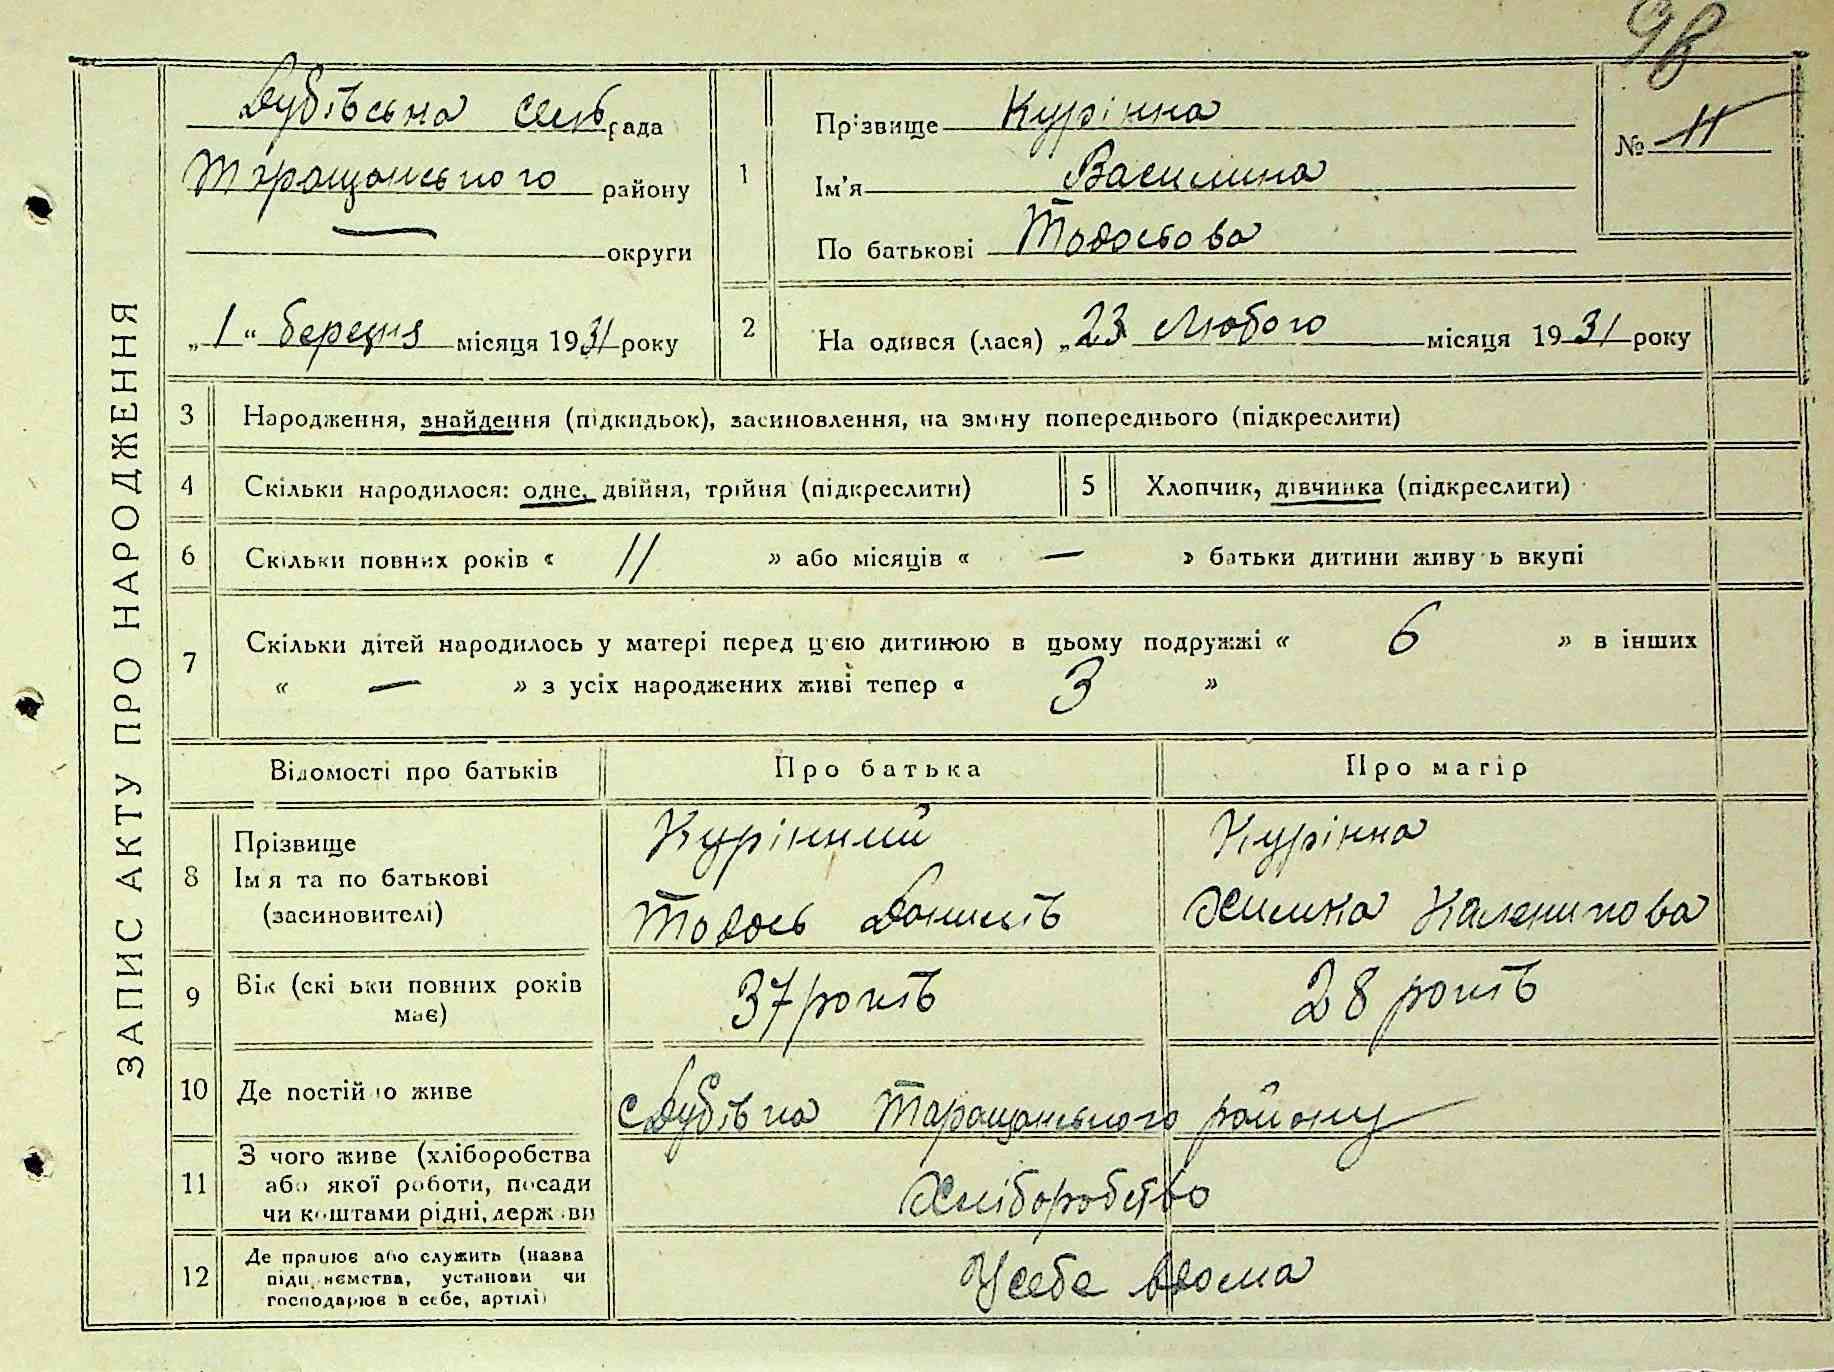 98
ЗАПИС АКТУ ПРО НАРОДЖЕННЯ
Дубівська сільрада
Таращанського району
— округи
„1“ березня місяця 1931 року
1 Прізвище Курінна
Ім'я Василина
По батькові Тодосьова
№ 11
2 На одився (лася) „23 Лютого місяця 1931 року
3 Народження, знайдення (підкидьок), засиновлення, на зміну попереднього (підкреслити)
4 Скільки народилося: одне, двійня, трійня (підкреслити)
5 Хлопчик, дівчинка (підкреслити)
6 Скільки повних років « 11 » або місяців « — » батьки дитини живу ь вкупі
7 Скільки дітей народилось у матері перед цією дитиною в цьому подружжі « 6 » в інших
« — » з усіх народжених живі тепер « 3 »
Відомості про батьків Про батька Про матір
8 Прізвище
Ім я та по батькові
(засиновителі)
Курінний
Тодось Данилів
Курінна
Химка Каленикова
9 Вік (скі ьки повних років
має)
37 років
28 років
10 Де постій о живе
с Дубівка Таращанського району
11 З чого живе (хліборобства
або якої роботи, посади
чи коштами рідні, держ ви
Хліборобство
12 Де працює або служить (назва
підп иємства, установи чи
господарює в себе, артілі)
У себе вдома